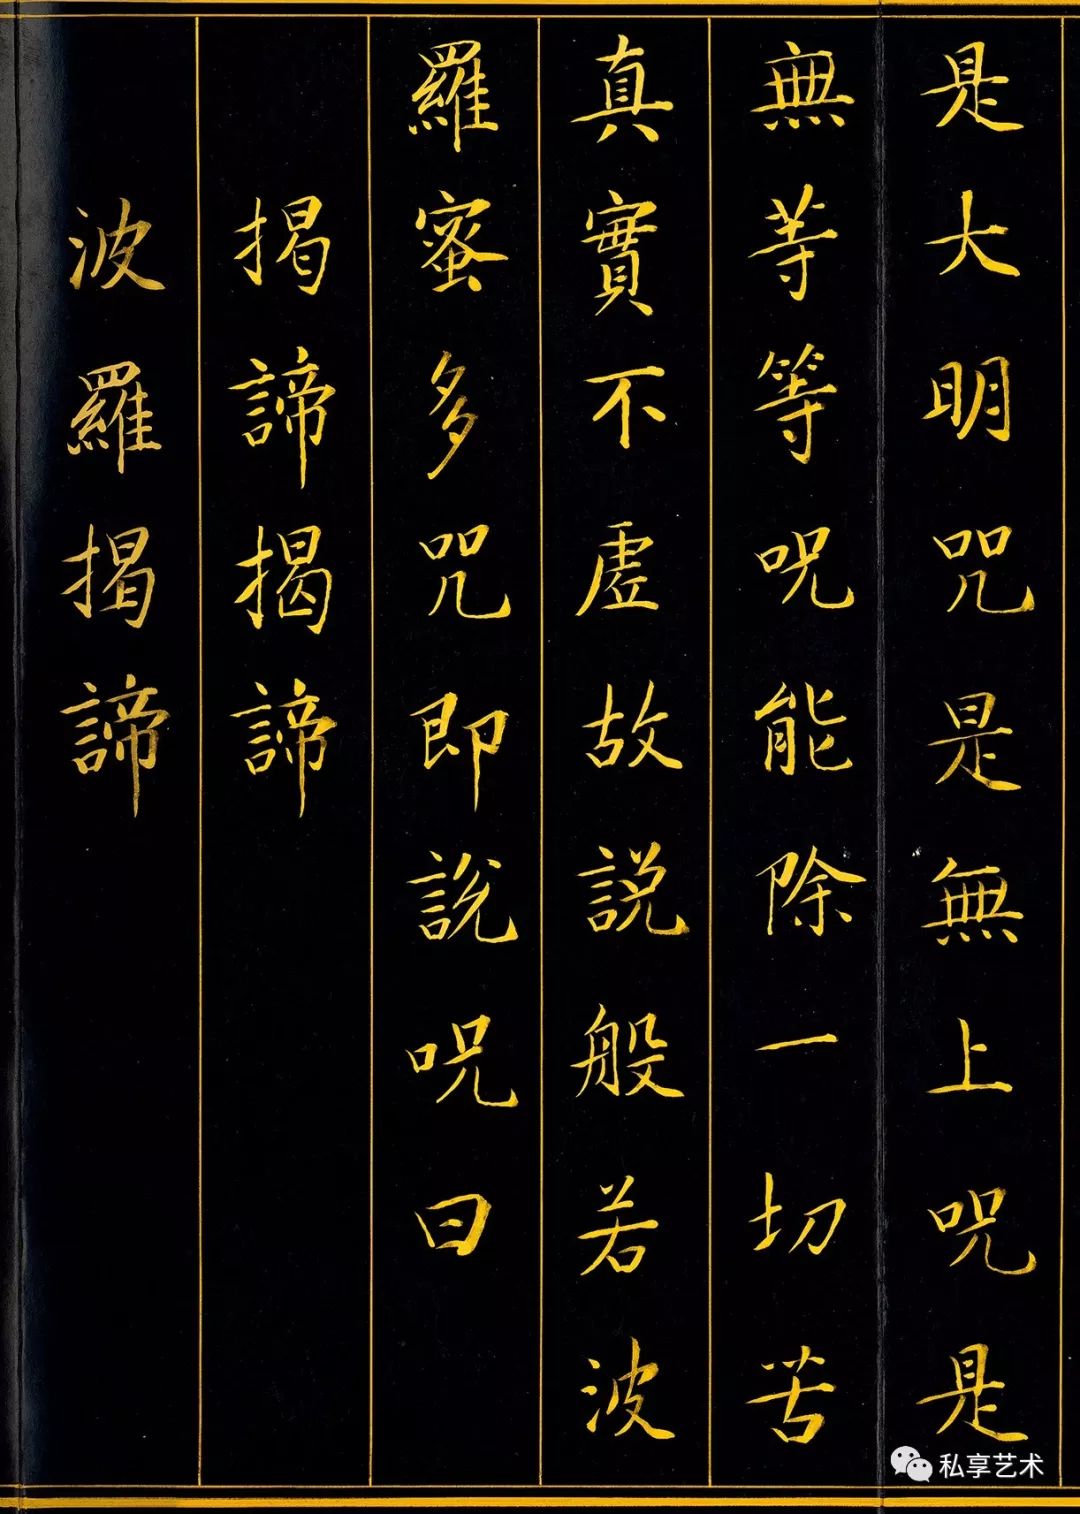 是大明咒是無上呪是
無等等呪能除一切苦
真實不虛故説般若波
羅蜜多咒即說呪曰
揭諦揭諦
波羅揭諦
私享艺术